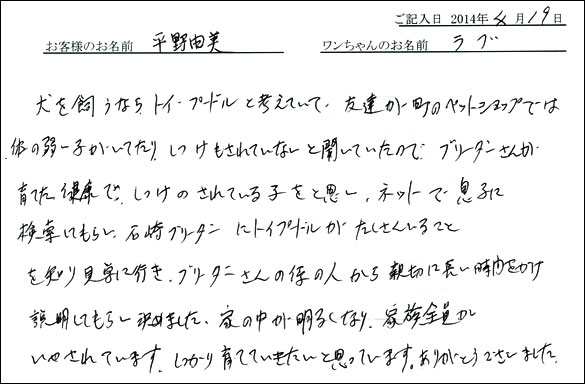 ご記入日 2014年 4月 19日
お客様のお名前 平野由美 ワンちゃんのお名前 ラブ
犬を飼うなら、トイ・プードルと考えていて、友達が町のペットショップでは
体の弱い子がいてたり、しつけもされていないと聞いていたので、ブリーダーさんが
育てた健康で、しつけのされている子をと思い、ネットで息子に
検索してもらい、石崎ブリーダーにトイプードルがたくさんいること
を知り見学に行き、ブリーダーさんの係の人から親切に長い時間をかけ
説明してもらい決めました、家の中が明るくなり、家族全員が
いやされています。しっかり育てていきたいと思っています。ありがとうございました。